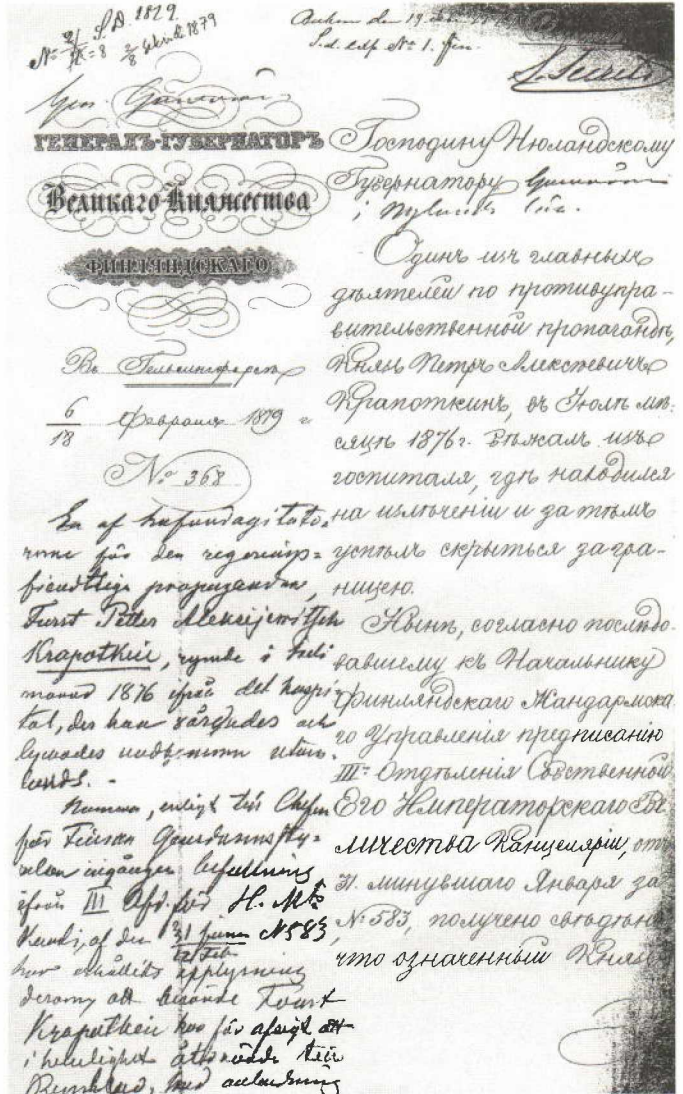 S.D. 1879.
S.d. exp. No 1.
ГЕНЕРАЛЪ-ГУБЕРНАТОРЪ
Великаго Княжества
ФИНЛЯНДСКАГО
Въ Гельсингфорсѣ
6/18 Февраля 1879 г.
№ 368
En af hufvudagitato-
rerne för den regerings-
fiendtliga propagandan,
Furst Petter Aleksejewitsch
Krapotkin, rymde i Juli
månad 1876 ifrån det hospi-
tal, der han vårdades och
lyckades undkomma utom-
lands. -
Numera, enligt till Chefen
för Finska Gendarmsty-
relsen ingången befallning
ifrån III Afd. för H. M:ts
Kansli, af den 31 N 583
har erhållits upplysning
derom, att berörde Furst
Krapotkin har för afsigt att
i hemlighet återvända till
Ryssland, med anledning
Господину Нюландскому
Губернатору
i Nylands län.
Одинъ изъ главныхъ
дѣятелей по противупра-
вительственной пропагандѣ,
Князь Петръ Алексѣевичъ
Крапоткинъ, въ Іюлѣ мѣ-
сяцѣ 1876 г. бѣжалъ изъ
госпиталя, гдѣ находился
на излѣченіи и за тѣмъ
успѣлъ скрыться за гра-
ницею.
Нынѣ, согласно послѣдо-
вавшему къ Начальнику
Финляндскаго Жандармска-
го Управленія предписанію
III го Отдѣленія Собственной
Его Императорскаго Ве
личества Канцеляріи, отъ
31. минувшаго Января за
№ 583, получено свѣдѣніе
что означенный Князь